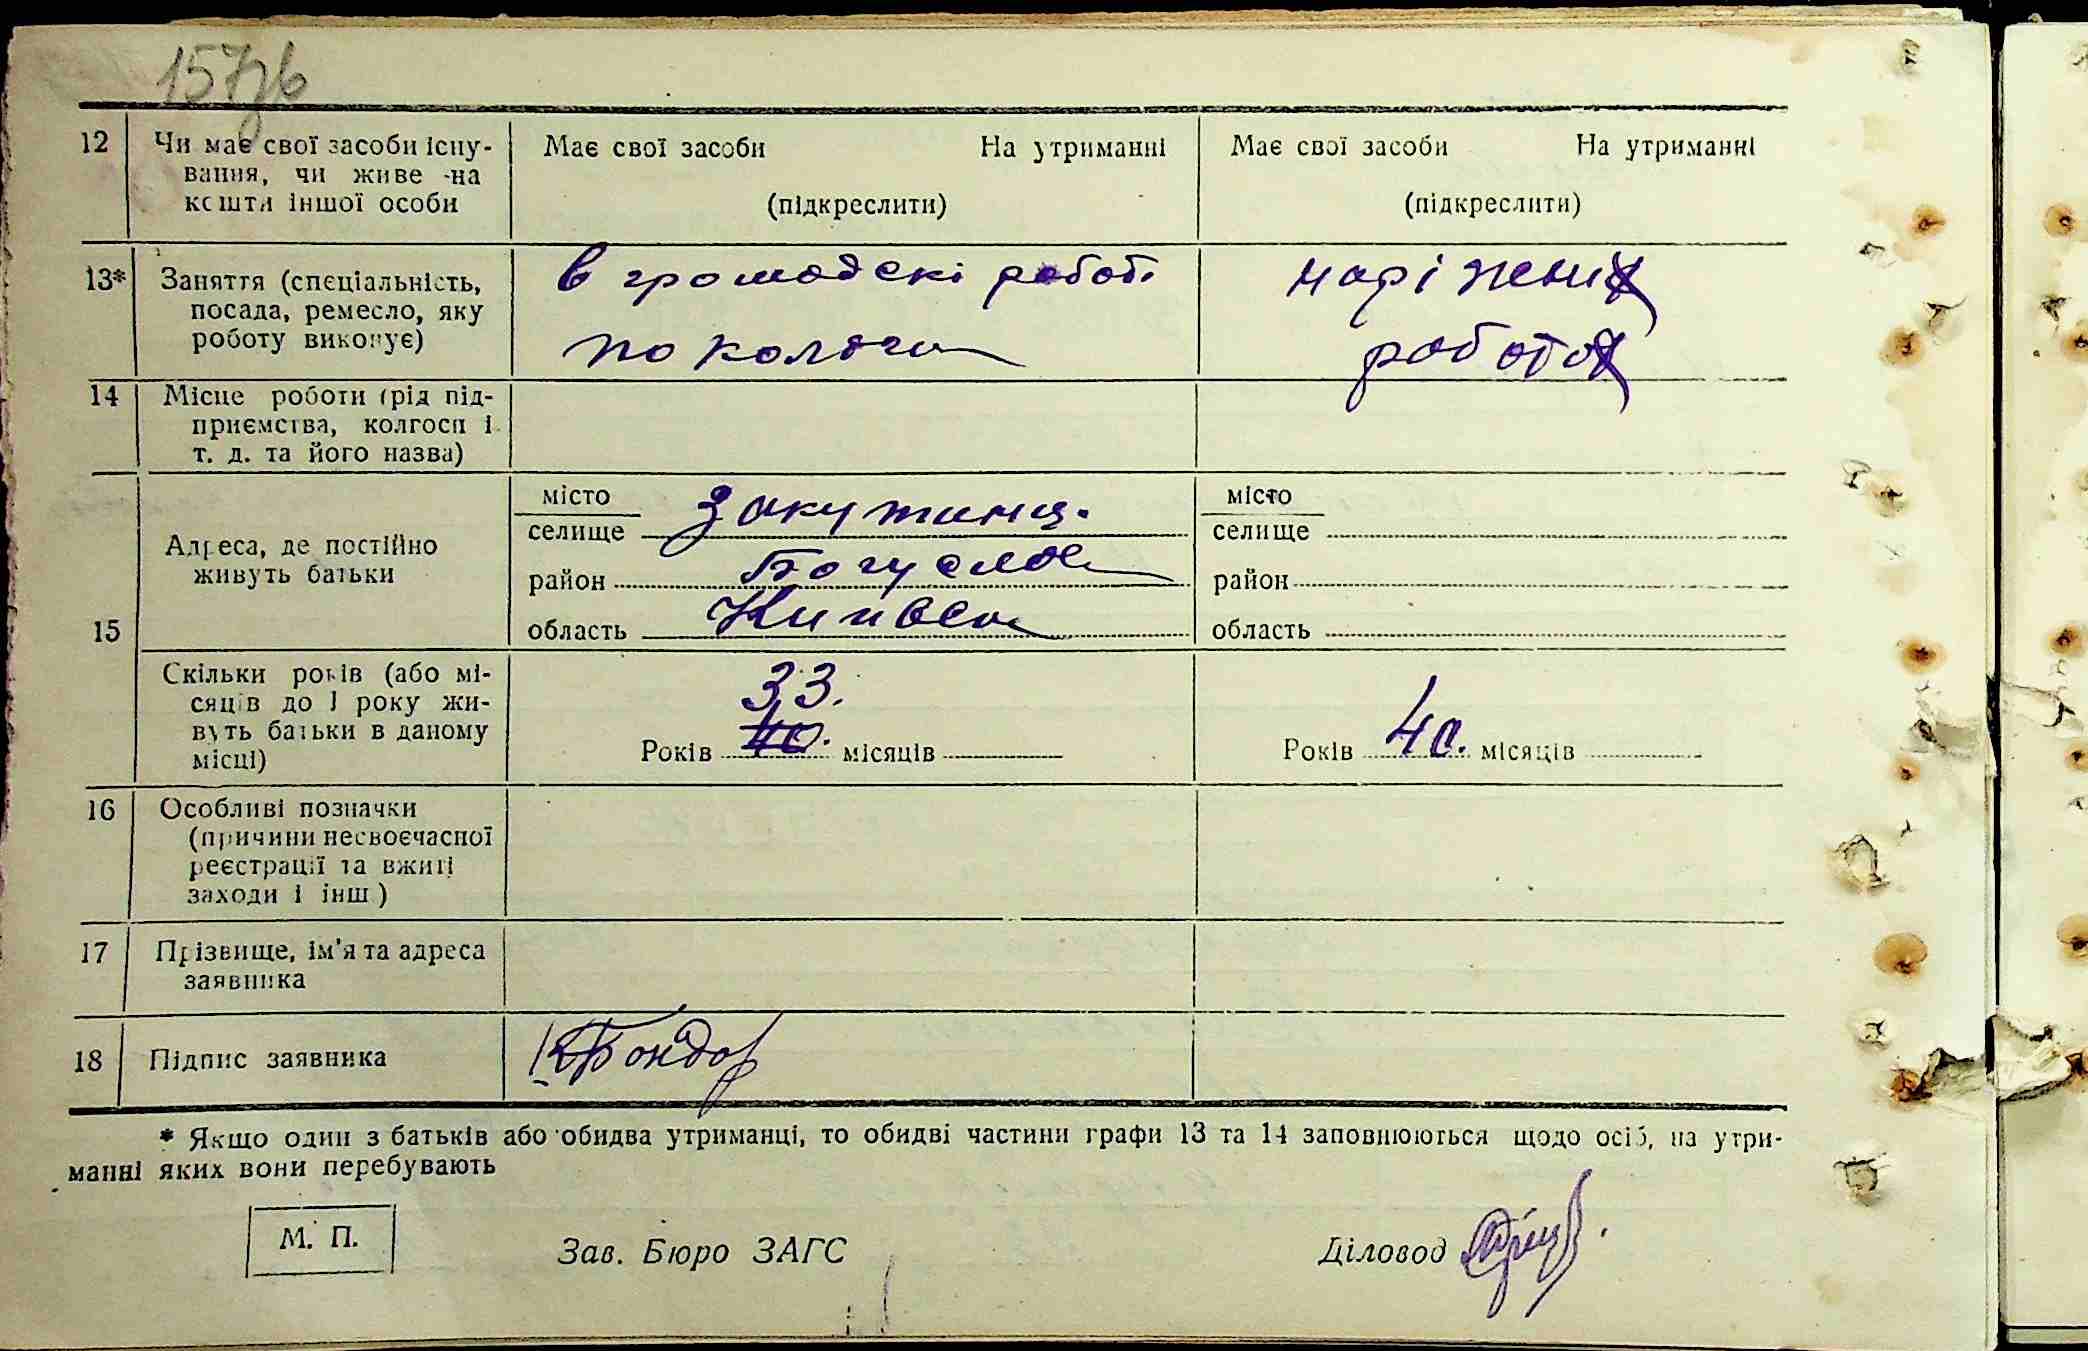 157зв
12 Чи має свої засоби існу- Має свої засоби На утриманні Має свої засоби На утриманні
вання, чи живе на
кошти іншої особи (підкреслити) (підкреслити)
13* Заняття (спеціальність, в громадскі роботі наріжених
посада, ремесло, яку
роботу виконує) по колгосп роботах
14 Місце роботи (рід під-
приємства, колгосп і
т. д. та його назва)
15 Адреса, де постійно
живуть батьки
місто
селище Закутинц.
район Богуслав
область Київск
місто
селище
район
область
Скільки років (або мі-
сяців до 1 року жи-
вуть батьки в даному
місці)
33.
Років 40. місяців Років 40. місяців
16 Особливі позначки
(причини несвоєчасної
реєстрації та вжиті
заходи і інш.)
17 Прізвище, ім'я та адреса
заявника
18 Підпис заявника Бондар
* Якщо один з батьків або обидва утриманці, то обидві частини графи 13 та 14 заповнюються щодо осіб, на утри-
манні яких вони перебувають
М. П. Зав. Бюро ЗАГС Діловод